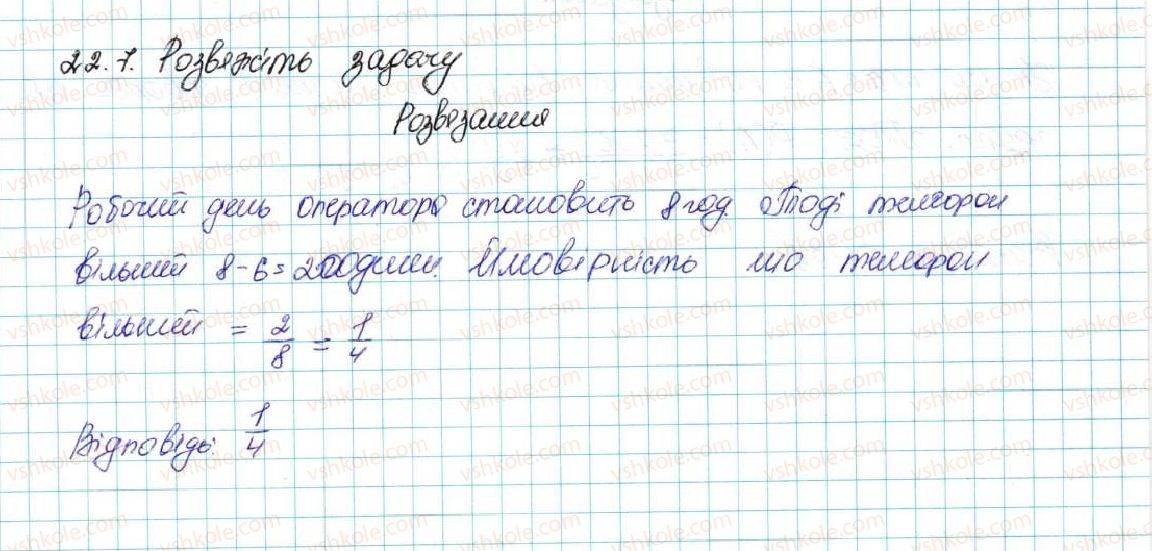 22.7. Розвяжіть задачу
Розвязання
Робочий день оператора становить 8 год. Тоді телефон
вільний 8-6=2 години. Ймовірність що телефон
вільний = 2/8 = 1/4
Відповідь: 1/4